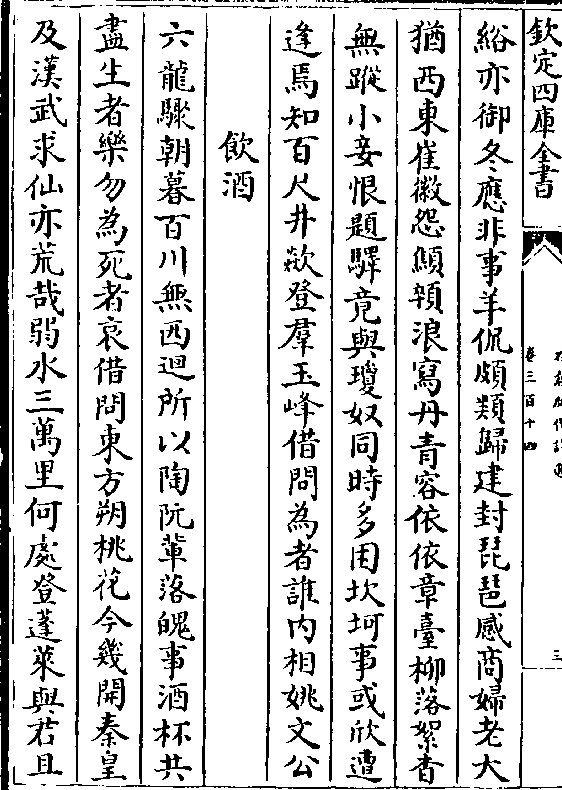 欽定四庫全書
卷三百十四
三
綌亦御冬應非事羊侃頗類歸建封琵琶感商婦老大
猶西東崔徽怨顛領浪寫丹青容依依章臺柳落絮杳
無蹤小妾恨題驛竟與瓊奴同時多困坎坷事或欣遭
逢焉知百尺井欻登羣玉峰借問為者誰内相姚文公
飲酒
六龍驟朝暮百川無西迴所以陶阮輩落魄事酒杯共
盡生者樂勿為死者哀借問東方朔桃花今幾開秦皇
及漢武求仙亦荒哉弱水三萬里何處登蓬萊與君且